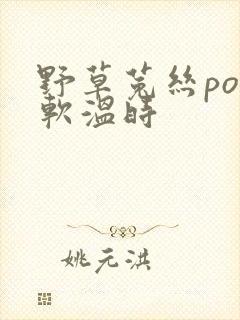 野草菟絲po
軟溫時
姚元洪